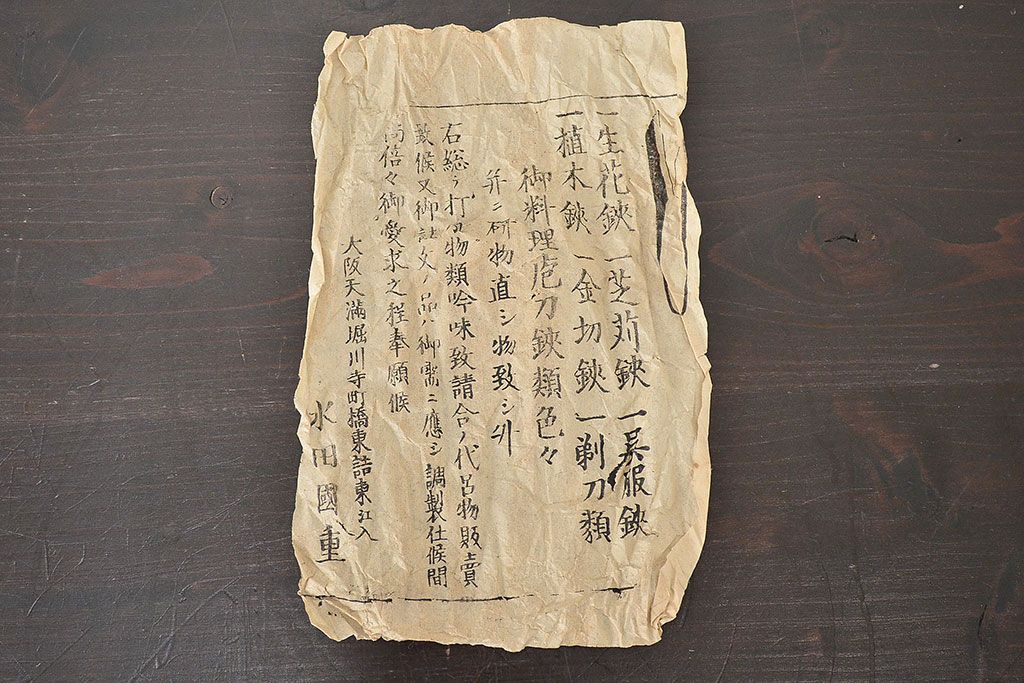 一生花鋏 一芝刈鋏 一呉服鋏
一植木鋏 一金切鋏 一剃刀類
御料理庖刀鋏類色々
并ニ研物直シ物致シ升
右総テ打刃物類吟味致請合ノ代呂物販賣
致候又御註文ノ品ハ御需ニ應シ調製仕候間
尚倍々御愛求之程奉願候
大阪天満堀川寺町橋東詰東江入
水田國重